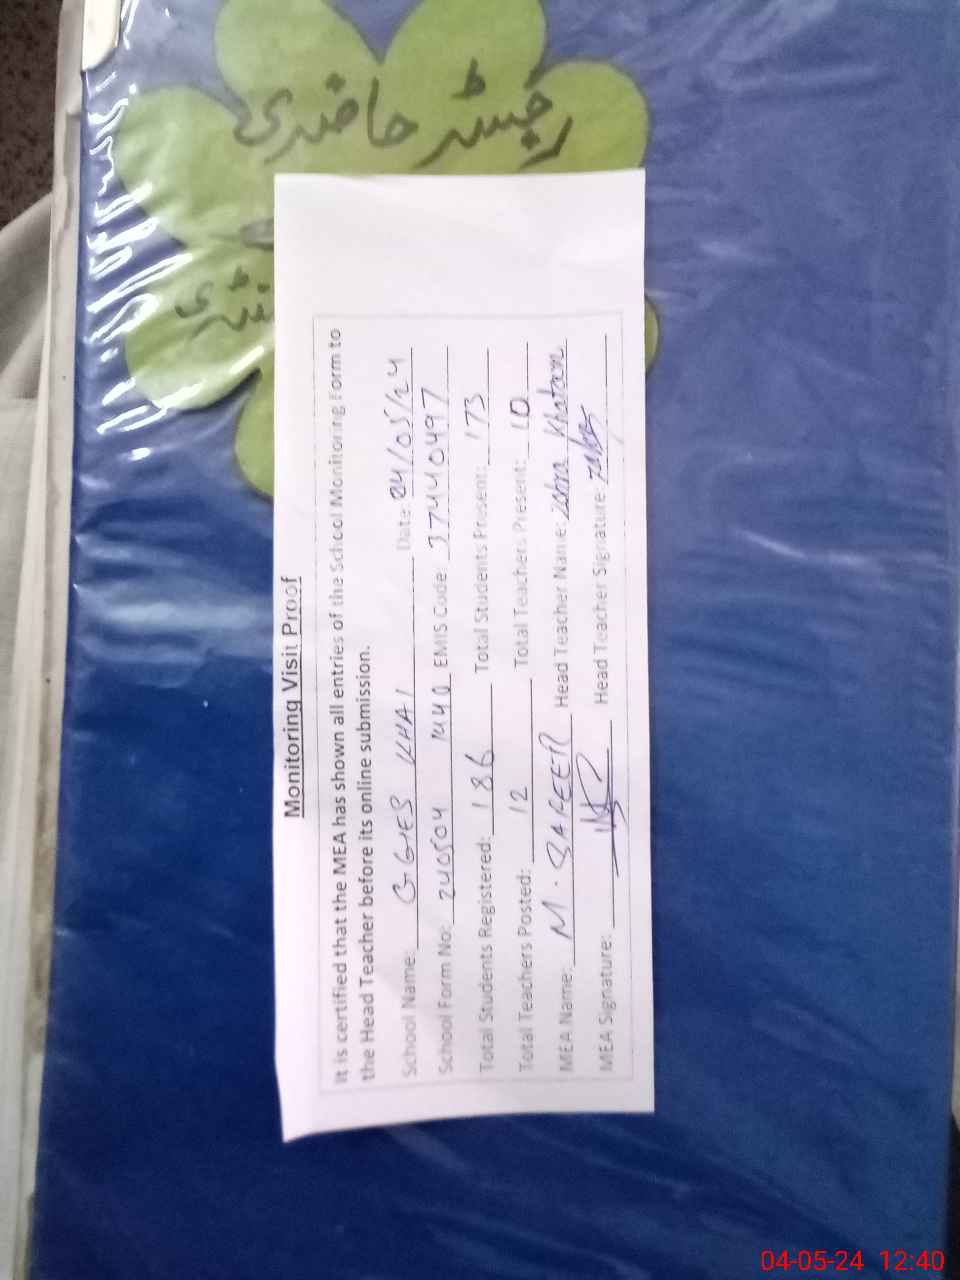 رجسٹر حاضری
Monitoring Visit Proof
It is certified that the MEA has shown all entries of the School Monitoring Form to
the Head Teacher before its online submission.
School Name: GGHES KHAI Date: 24/05/24
School Form No: 240504 1440 EMIS Code: 37440497
Total Students Registered: 186 Total Students Present: 173
Total Teachers Posted: 12 Total Teachers Present: 10
MEA Name: M. SAFEER Head Teacher Name: Khatoon
MEA Signature: Head Teacher Signature:
04-05-24 12:40